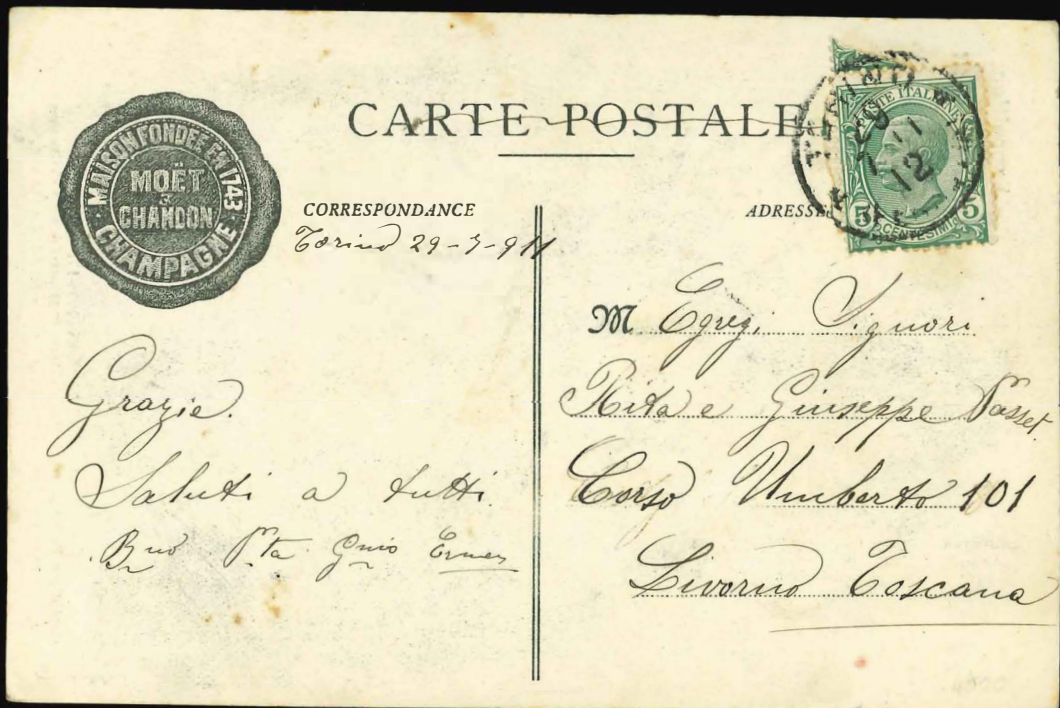 CARTE POSTALE
MAISON FONDÉE EN 1743
MOËT
&
CHANDON
CHAMPAGNE
CORRESPONDANCE
Torino 29-7-911
Grazie.
Saluti a tutti
ADRESSE
POSTE ITALIANE
29
7 11
12
5 5
CENTESIMI
M Egregi Signori
Rita e Giuseppe Passet
Corso Umberto 101
Livorno Toscana